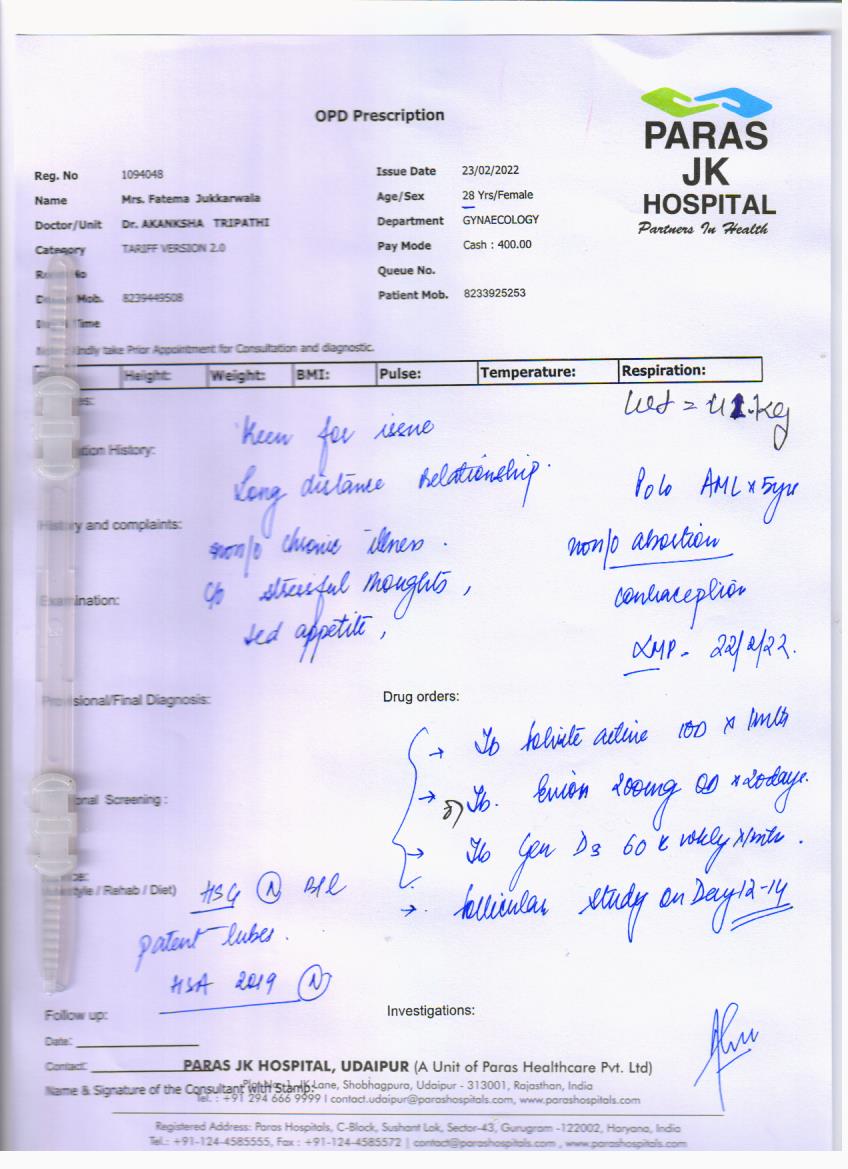 OPD Prescription
PARAS
JK
HOSPITAL
Partners In Health
Reg. No 1094048 Issue Date 23/02/2022
Name Mrs. Fatema Jukkarwala Age/Sex 28 Yrs/Female
Doctor/Unit Dr. AKANKSHA TRIPATHI Department GYNAECOLOGY
Category TARIFF VERSION 2.0 Pay Mode Cash : 400.00
No Queue No.
Mob. 8239449508 Patient Mob. 8233925253
Time
Kindly take Prior Appointment for Consultation and diagnostic.
Height: Weight: BMI: Pulse: Temperature: Respiration:
Keen for issue
History:
Long distance Relationship.
AML x 5yrs
History and complaints:
non/o chronic illness.
non/o abortion
Examination:
c/o stressful thoughts,
contraception
appetite,
LMP - 22/2/22.
Provisional/Final Diagnosis: Drug orders:
→ Tb active x 1mth
→ Tb. Evion 200mg OD x 20days.
Screening :
→ Tb Gen D3 60 K wkly x 1mth.
style / Rehab / Diet)
HSG N B/L
→ follicular study on Day 12-14
patent tubes.
HSA 2019 N
Follow up: Investigations:
Date:
Contact:
PARAS JK HOSPITAL, UDAIPUR (A Unit of Paras Healthcare Pvt. Ltd)
Name & Signature of the Consultant with Stamp:
Lane, Shobhagpura, Udaipur - 313001, Rajasthan, India
Tel. : +91 294 666 9999 I contact.udaipur@parashospitals.com, www.parashospitals.com
Registered Address: Paras Hospitals, C-Block, Sushant Lok, Sector-43, Gurugram -122002, Haryana, India
Tel.: +91-124-4585555, Fax : +91-124-4585572 | contact@parashospitals.com , www.parashospitals.com